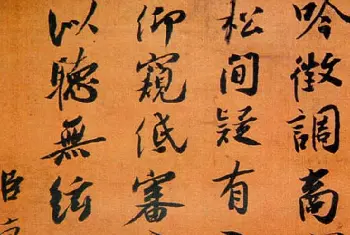 吟徵調商
松間疑有
仰窺低審
似聽無絃
臣